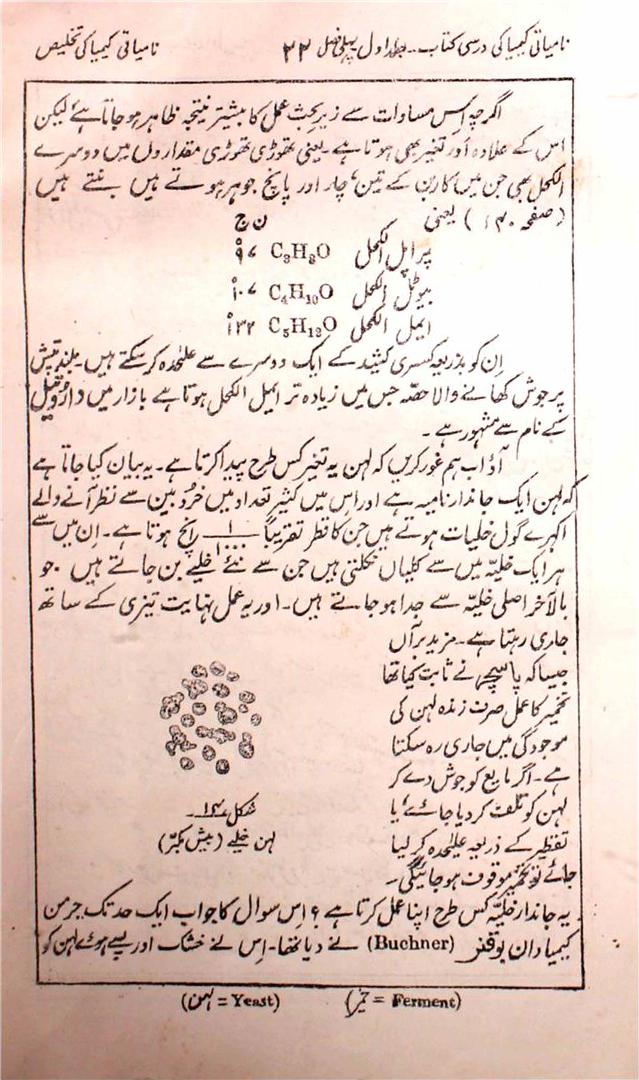 نامیاتی کیمیا کی درسی کتاب۔۔ جلد اول۔ پہلی فصل ۲۲ نامیاتی کیمیا کی تخلیص
اگرچہ اس مساوات سے زیر بحث عمل کا بیشتر نتیجہ ظاہر ہو جاتا ہے لیکن
اس کے علاوہ اَور تغیر بھی ہوتا ہے۔ یعنی تھوڑی تھوڑی مقداروں میں دوسرے
الکحل بھی جن میں کاربن کے تین، چار اور پانچ جوہر ہوتے ہیں بنتے ہیں
(صفحہ ۱۳۰) یعنی ن ج
پراپل الکحل C₃H₈O ۹۷°
بیوٹل الکحل C₄H₁₀O ۱۰۷°
ایمل الکحل C₅H₁₂O ۱۳۲°
اِن کو بذریعہ کسری کشید کے ایک دوسرے سے علیٰحدہ کر سکتے ہیں۔ بلند تپش
پر جوش کھانے والا حصّہ جس میں زیادہ تر ایمل الکحل ہوتا ہے بازار میں
کے نام سے مشہور ہے۔
آؤ اب ہم غور کریں کہ لہن یہ تغیر کس طرح پیدا کرتا ہے۔ یہ بیان کیا جاتا ہے
کہ لہن ایک جاندار نامیہ ہے اور اس میں کثیر تعداد میں خردبین سے نظر آنے والے
اکہرے گول خلیات ہوتے ہیں جن کا قطر تقریباً انچ ہوتا ہے۔ اِن میں سے
ہر ایک خلیّہ میں سے کلیاں نکلتی ہیں جن سے نئے خلیے بن جاتے ہیں جو
بالآخر اصلی خلیّہ سے جدا ہو جاتے ہیں۔ اور یہ عمل نہایت تیزی کے ساتھ
جاری رہتا ہے۔ مزید برآں
جیسا کہ پاسچر نے ثابت کیا تھا
تخمیر کا عمل صرف زندہ لہن کی
موجودگی میں جاری رہ سکتا
ہے۔ اگر مایع کو جوش دے کر
لہن کو تلف کر دیا جائے یا
تقطیر کے ذریعہ علیٰحدہ کر لیا
جائے تو تخمیر موقوف ہو جائیگی۔
شکل ۱۴
لہن خلیے (بیش مکبّر)
یہ جاندار خلیّہ کس طرح اپنا عمل کرتا ہے؟ اِس سوال کا جواب ایک حد تک جرمن
کیمیا دان بوقنر (Buchner) نے دیا تھا۔ اِس نے خشک اور پسے ہوئے لہن کو
(خمیر = Ferment) (لہن = Yeast)